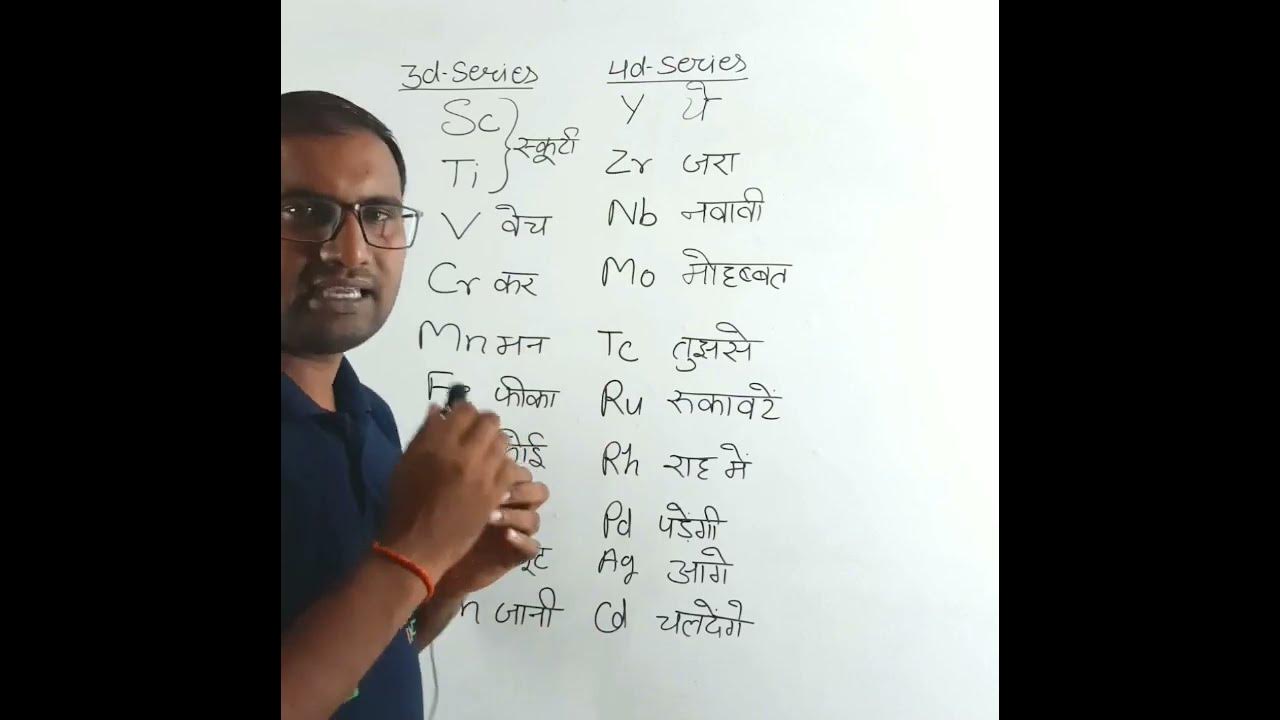 3d-Series 4d-Series
Sc Y ये
स्कूटी
Ti Zr जरा
V वेच Nb नवावी
Cr कर Mo मोहब्बत
Mn मन Tc तुझसे
Fe फीका Ru रुकावटें
Rh राह में
Pd पड़ेगी
Ag आगे
जानी Cd चलदेंगे